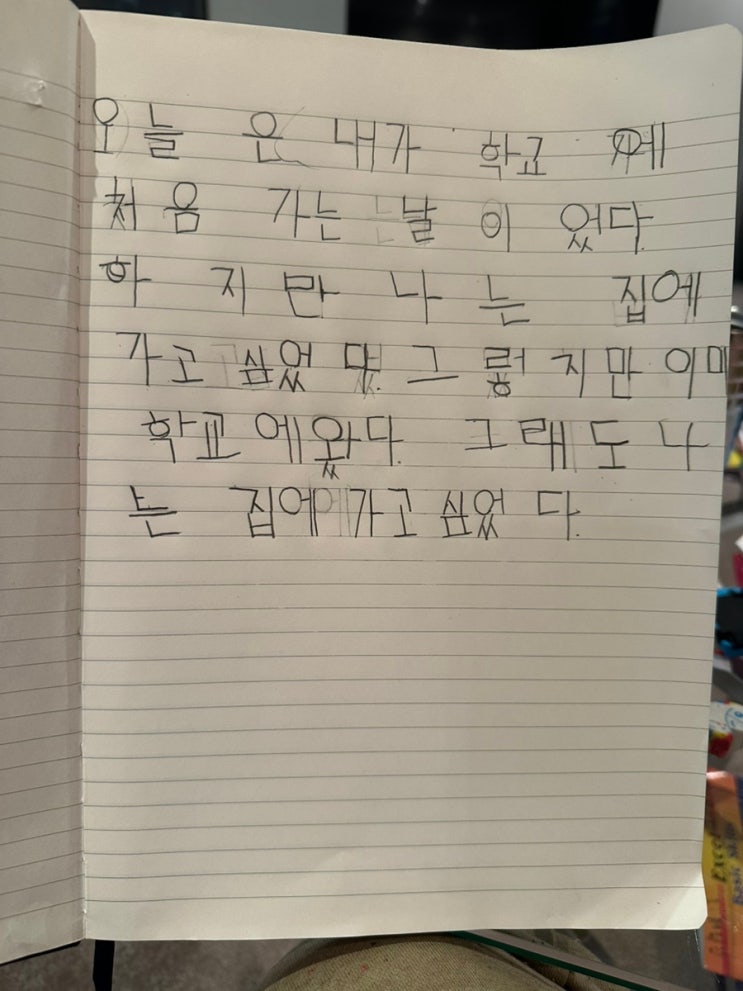 오늘은 내가 학교에
처음 가는 날이었다.
하지만 나는 집에
가고 싶었다. 그렇지만 이미
학교에 왔다. 그래도 나
는 집에 가고 싶었다.